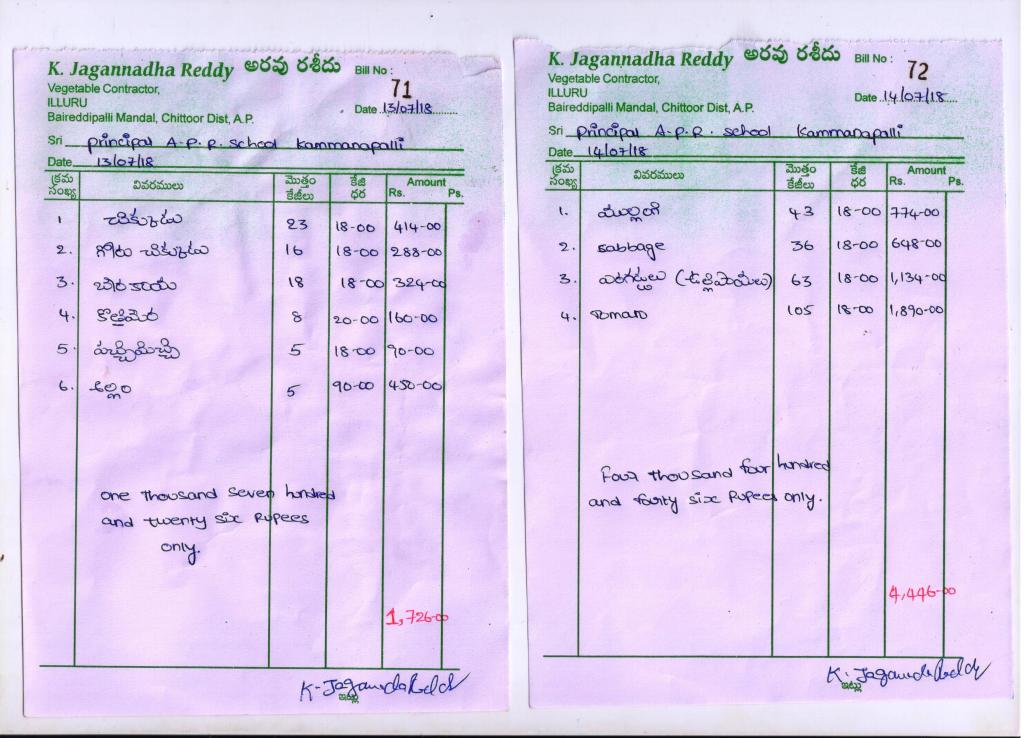 K. Jagannadha Reddy అరవు రశీదు Bill No : 71
Vegetable Contractor,
ILLURU
Baireddipalli Mandal, Chittoor Dist, A.P. Date 13/07/18
Sri principal A.P.R. school Kammanapalli
Date 13/07/18
క్రమ సంఖ్య వివరములు మొత్తం కేజీలు కేజి ధర Amount Rs. Ps.
1 చిక్కుడు 23 18-00 414-00
2. గోరు చిక్కుడు 16 18-00 288-00
3. బీరకాయ 18 18-00 324-00
4. కొత్తిమెర 8 20-00 160-00
5. పచ్చిమిర్చి 5 18-00 90-00
6. అల్లం 5 90-00 450-00
one thousand seven hundred
and twenty six Rupees
only.
1,726-00
K. Jaganada Reddy
ఇట్లు
K. Jagannadha Reddy అరవు రశీదు Bill No : 72
Vegetable Contractor,
ILLURU
Baireddipalli Mandal, Chittoor Dist, A.P. Date 14/07/18
Sri principal A.P.R. school Kammanapalli
Date 14/07/18
క్రమ సంఖ్య వివరములు మొత్తం కేజీలు కేజి ధర Amount Rs. Ps.
1. ముల్లంగి 43 18-00 774-00
2. cabbage 36 18-00 648-00
3. ఎరగడ్డలు (ఉల్లిపాయలు) 63 18-00 1,134-00
4. Tomato 105 18-00 1,890-00
Four thousand four hundred
and fourty six Rupees only.
4,446-00
K. Jaganada Reddy
ఇట్లు